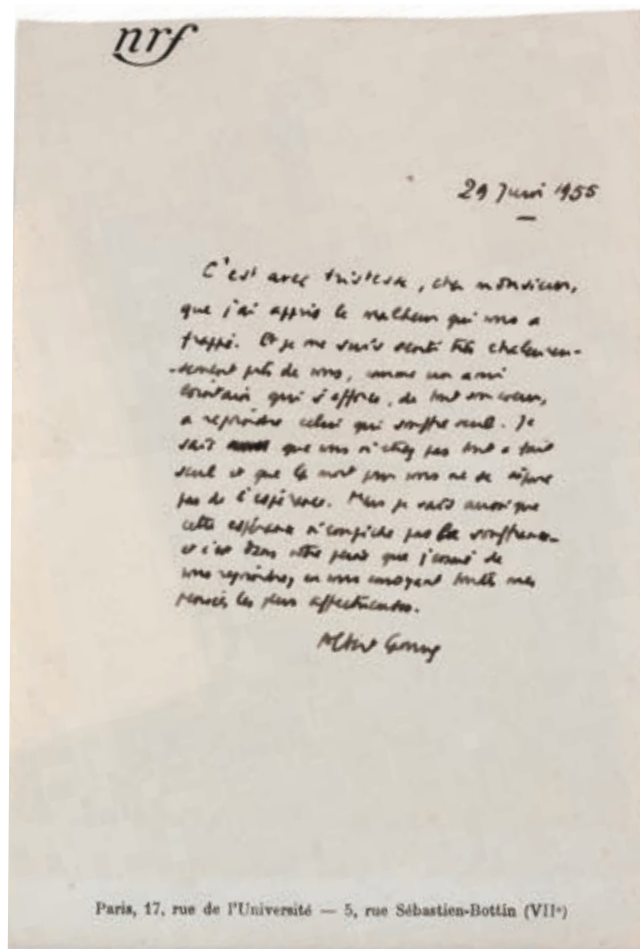 nrf
29 Juin 1955
C'est avec tristesse, cher monsieur,
que j'ai appris le malheur qui vous a
frappé. Et je me suis senti très chaleureu-
-sement près de vous, comme un ami
lointain qui s'efforce, de tout son coeur,
a rejoindre celui qui souffre seul. Je
sais que vous n'êtes pas tout a fait
seul et que la mort pour vous ne se sépare
pas de l'espérance. Mais je sais aussi que
cette espérance n'empêche pas la souffrance
et c'est dans votre peine que j'essaie de
vous rejoindre, en vous envoyant toutes mes
pensées les plus affectueuses.
Albert Camus
Paris, 17, rue de l'Université — 5, rue Sébastien-Bottin (VIIe)